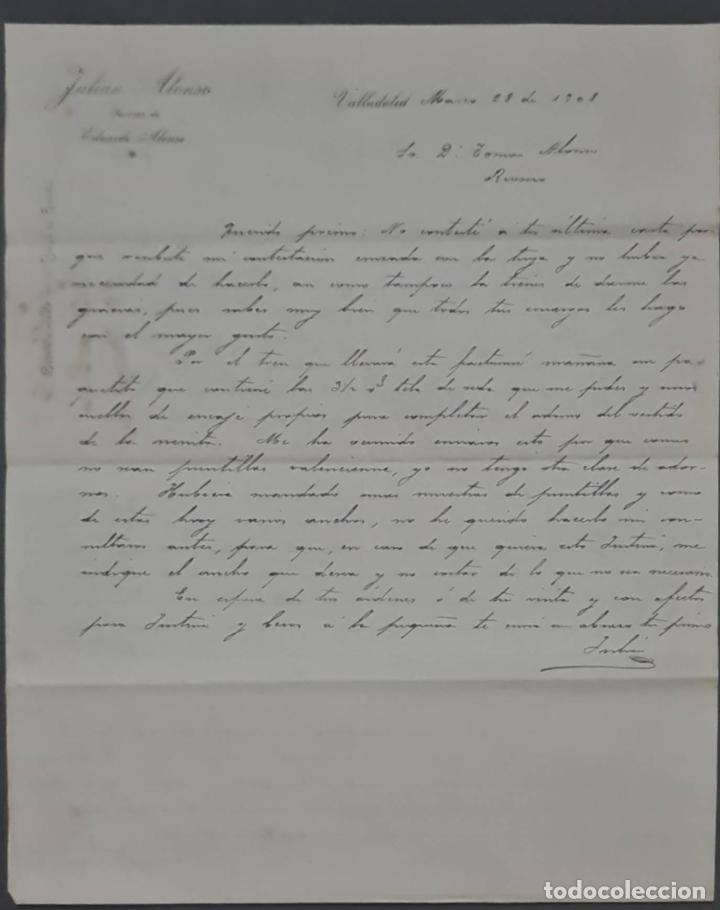 Julian Alonso
Eduardo Alonso
Valladolid Marzo 28 de 1908
Sr. Dn. Tomas Alonso
Rioseco
Querido primo: No contesté a tu última carta por
que recibiste mi contestación cruzada con la tuya y no hubia ya
necesidad de hacerlo, asi como tampoco la tienes de darme las
gracias, pues sabes muy bien que todos tus encargos les hago
con el mayor gusto.
Por el tren que llevará esta facturaré mañana un pa-
quetito que contiene los 3½ tela de seda que me pides y unos
cuellos de encaje propios para completar el adorno del vestido
de la nenita. Me ha ocurrido enviaros esto por que como
no sean puntillas valencienne, yo no tengo otra clase de ador-
nos. Hubiera mandado unas muestras de puntillas y como
de estas hay varios anchos, no he querido hacerlo sin con-
sultaros antes, para que, en caso de que quiera esto Justina, me
indique el ancho que desea y no cortar de lo que no sea necesario.
En espera de tus órdenes ó de tu visita y con afectos
para Justina y besos á la pequeña te envia un abrazo tu primo
Julián
todocoleccion.net